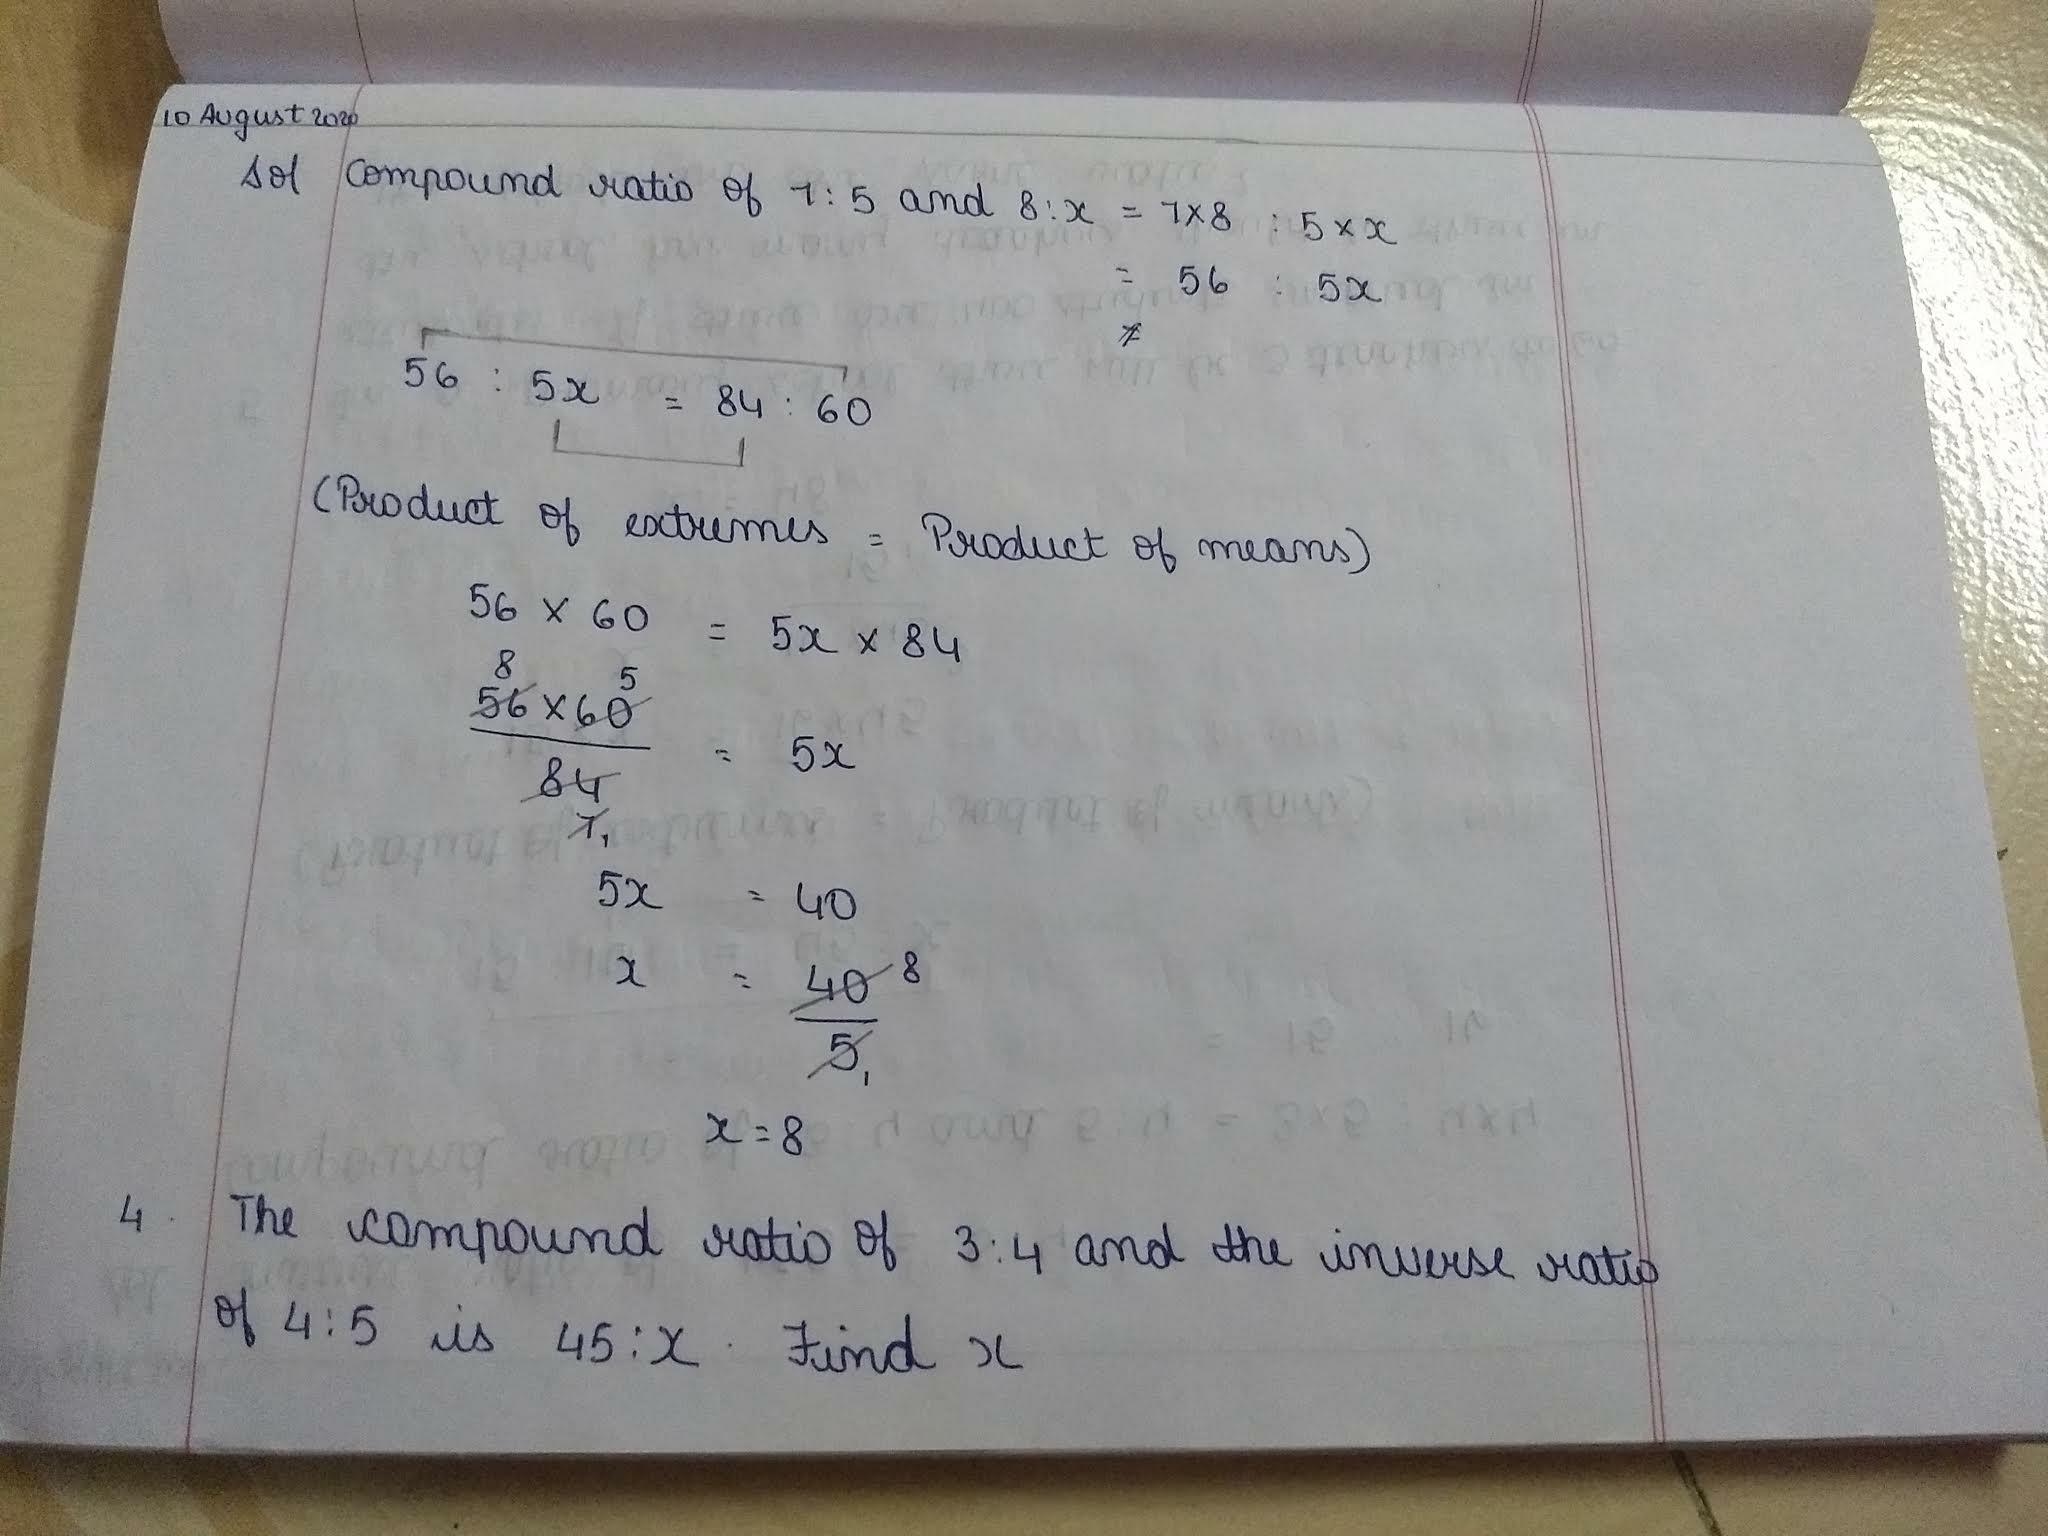 10 August 2020
Sol Compound ratio of 7:5 and 8:x = 7×8 : 5×x
= 56 : 5x
56 : 5x = 84 : 60
(Product of extremes = Product of means)
56 × 60 = 5x × 84
8 5
56 × 60
= 5x
84
7 1
5x = 40
x = 40 8
5 1
x = 8
4. The compound ratio of 3:4 and the inverse ratio
of 4:5 is 45:x. Find x